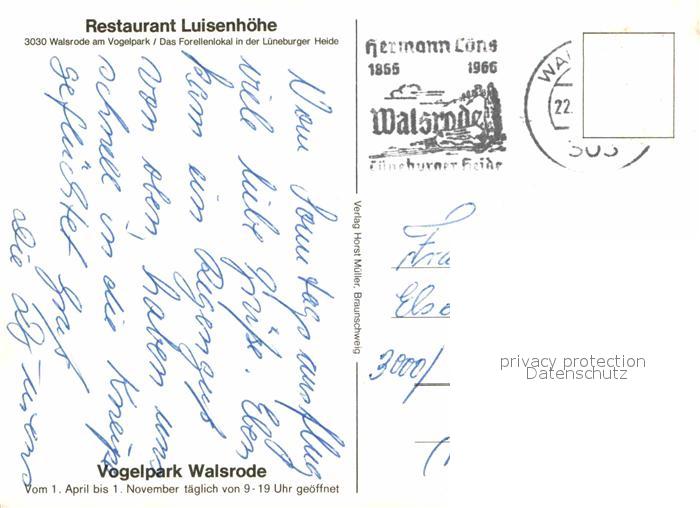 Restaurant Luisenhöhe
3030 Walsrode am Vogelpark / Das Forellenlokal in der Lüneburger Heide
Vom Sonntagsausflug
viele liebe Grüße. Eben
kam ein Regenguß
von oben, haben uns
schnell in die Kneipe
geflüchtet. Gruß
Die
Vogelpark Walsrode
Vom 1. April bis 1. November täglich von 9-19 Uhr geöffnet
Verlag Horst Müller, Braunschweig
Hermann Löns
1866 1966
Walsrode
Lüneburger Heide
WA
22.
303
Frau
Else
3000/
privacy protection
Datenschutz